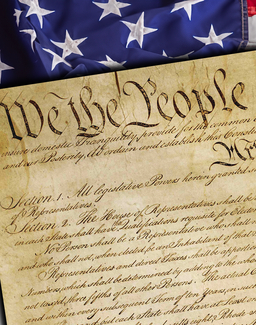 We the People
insure domestic Tranquility, provide for the common
and our Posterity, do ordain and establish this Constitu
Art
Section. 1. All legislative Powers herein granted s
of Representatives.
Section. 2. The House of Representatives shall be
in each State shall have Qualifications requisite for Elect
No Person shall be a Representative who shall
and who shall not, when elected, be an Inhabitant of that
Representatives and direct Taxes shall be appor
Numbers, which shall be determined by adding to the whole
not taxed, three fifths of all other Persons. The actual E
and within every subsequent Term of ten Years, in such
and each State shall have at Least on